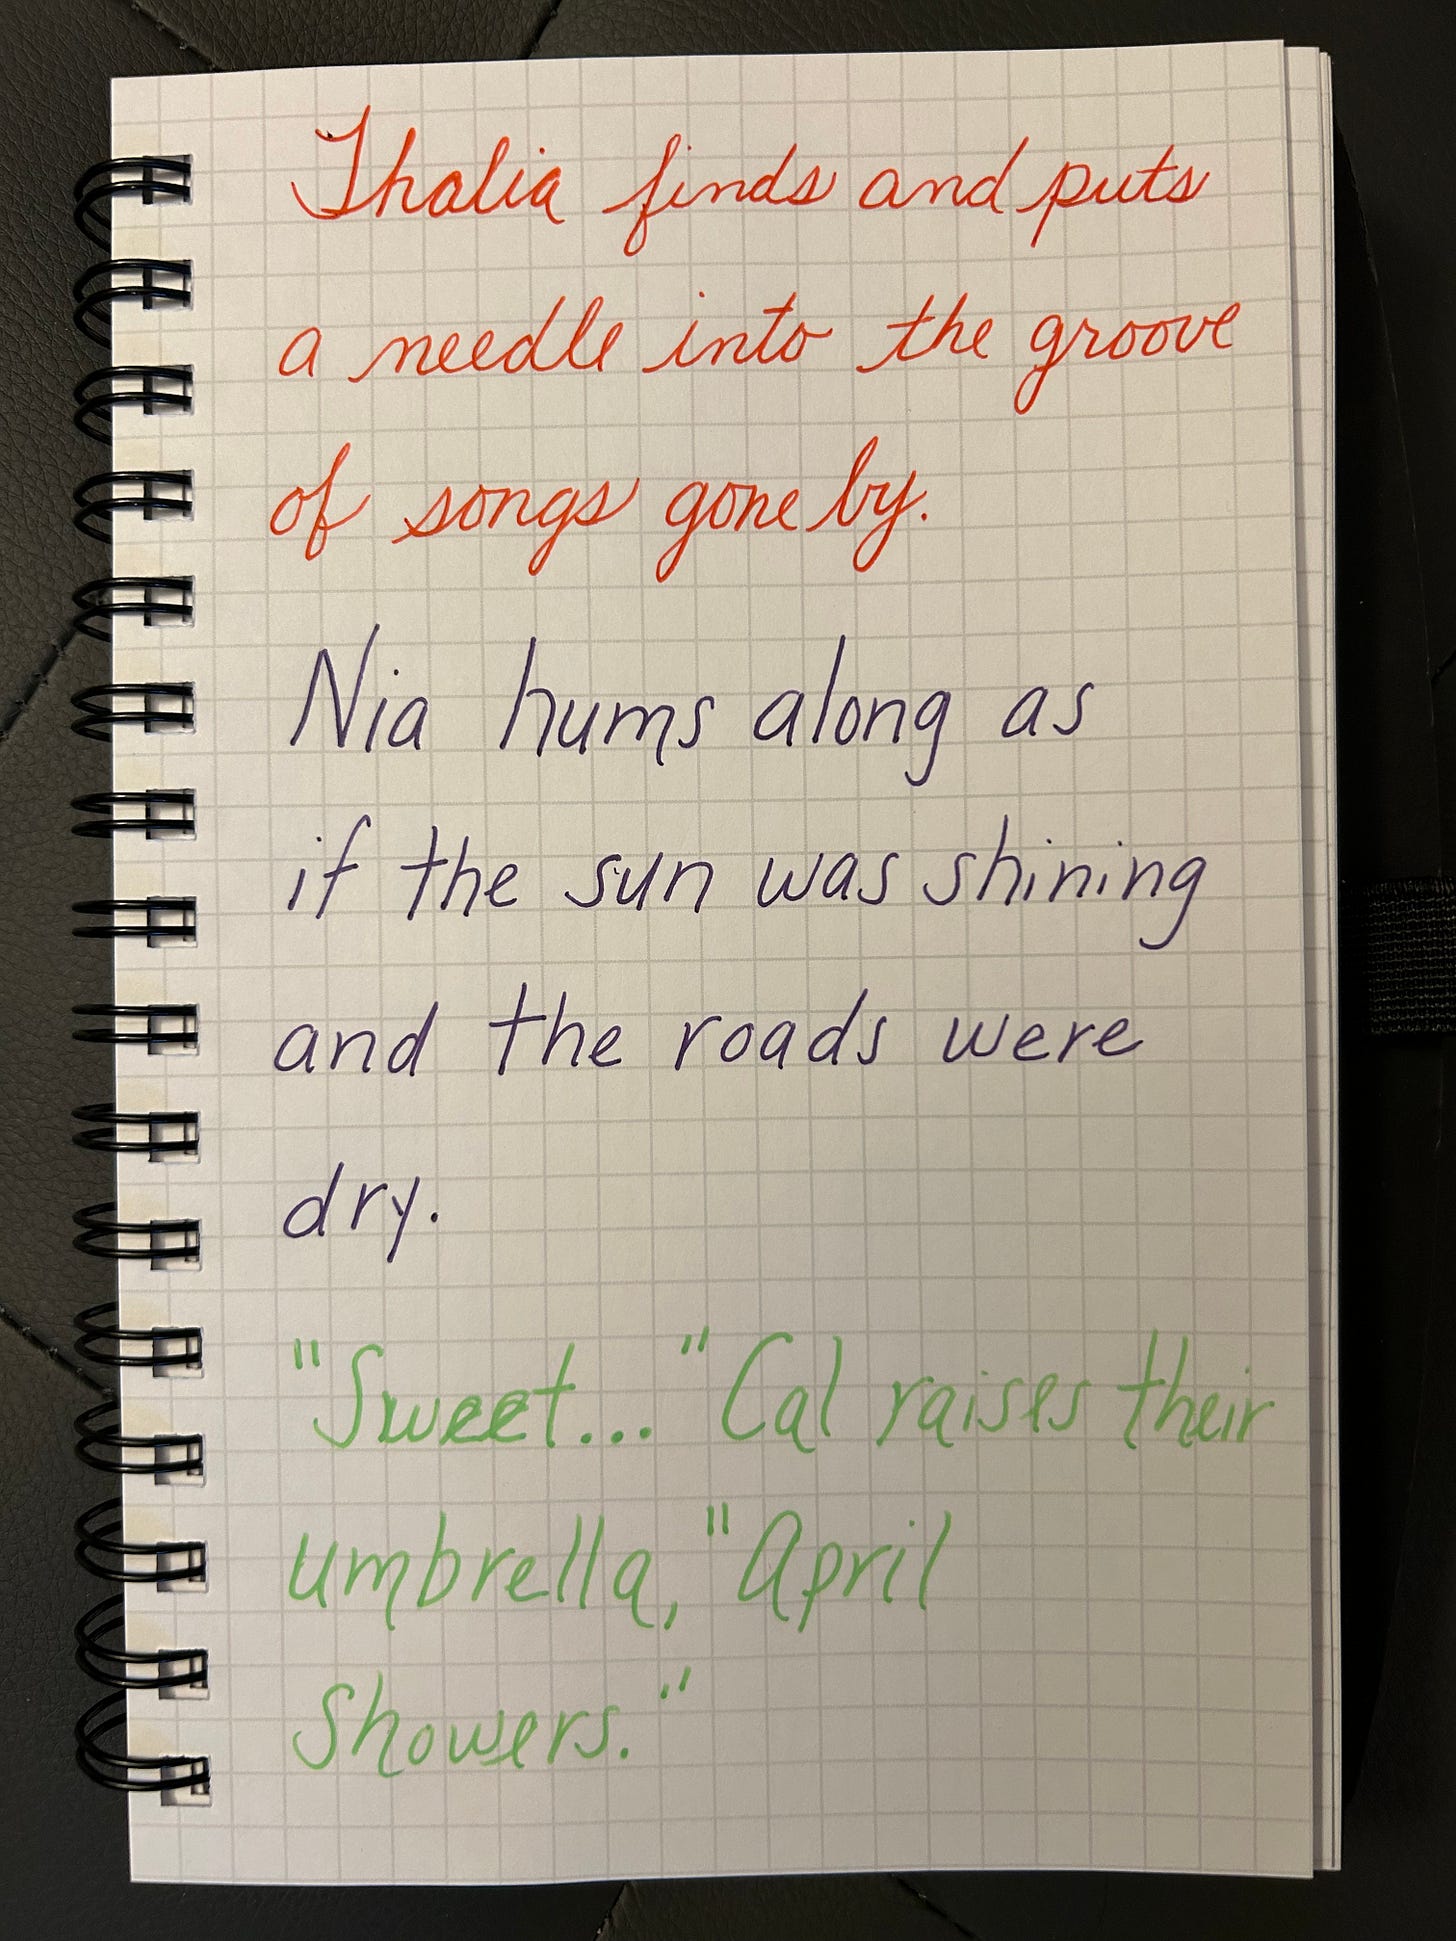 Thalia finds and puts
a needle into the groove
of songs gone by.
Nia hums along as
if the sun was shining
and the roads were
dry.
"Sweet..." Cal raises their
umbrella, "April
Showers."